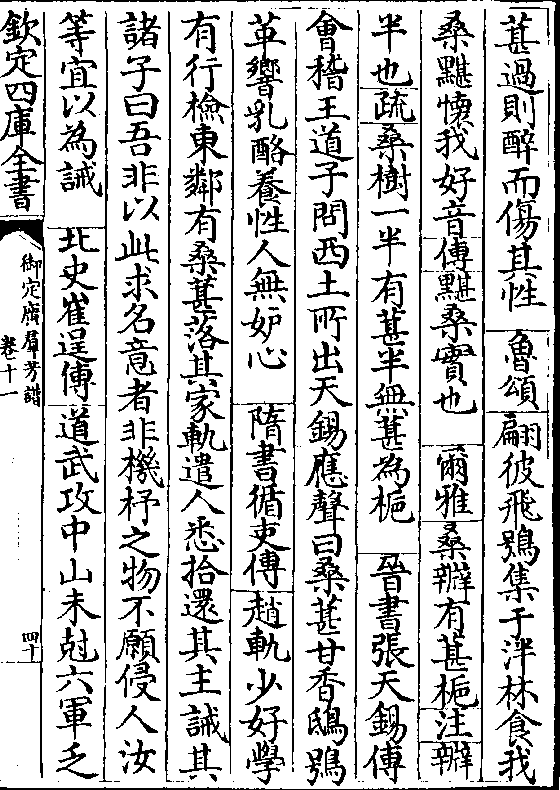 葚過則醉而傷其性 魯頌翩彼飛鴞集于泮林食我
桑黮懷我好音傳黮桑實也 爾雅桑辧有葚梔注辧
半也疏桑樹一半有葚半無葚為梔 晉書張天錫傳
會稽王道子問西土所出天錫應聲曰桑葚甘香鴟鴞
革響乳酪養性人無妒心 隋書循吏傳趙軌少好學
有行檢東鄰有桑葚落其家軌遣人悉拾還其主誡其
諸子曰吾非以此求名意者非機杼之物不願侵人汝
等宜以為誡 北史崔逞傳道武攻中山未尅六軍乏
欽定四庫全書
御定廣羣芳譜
卷十一
四十